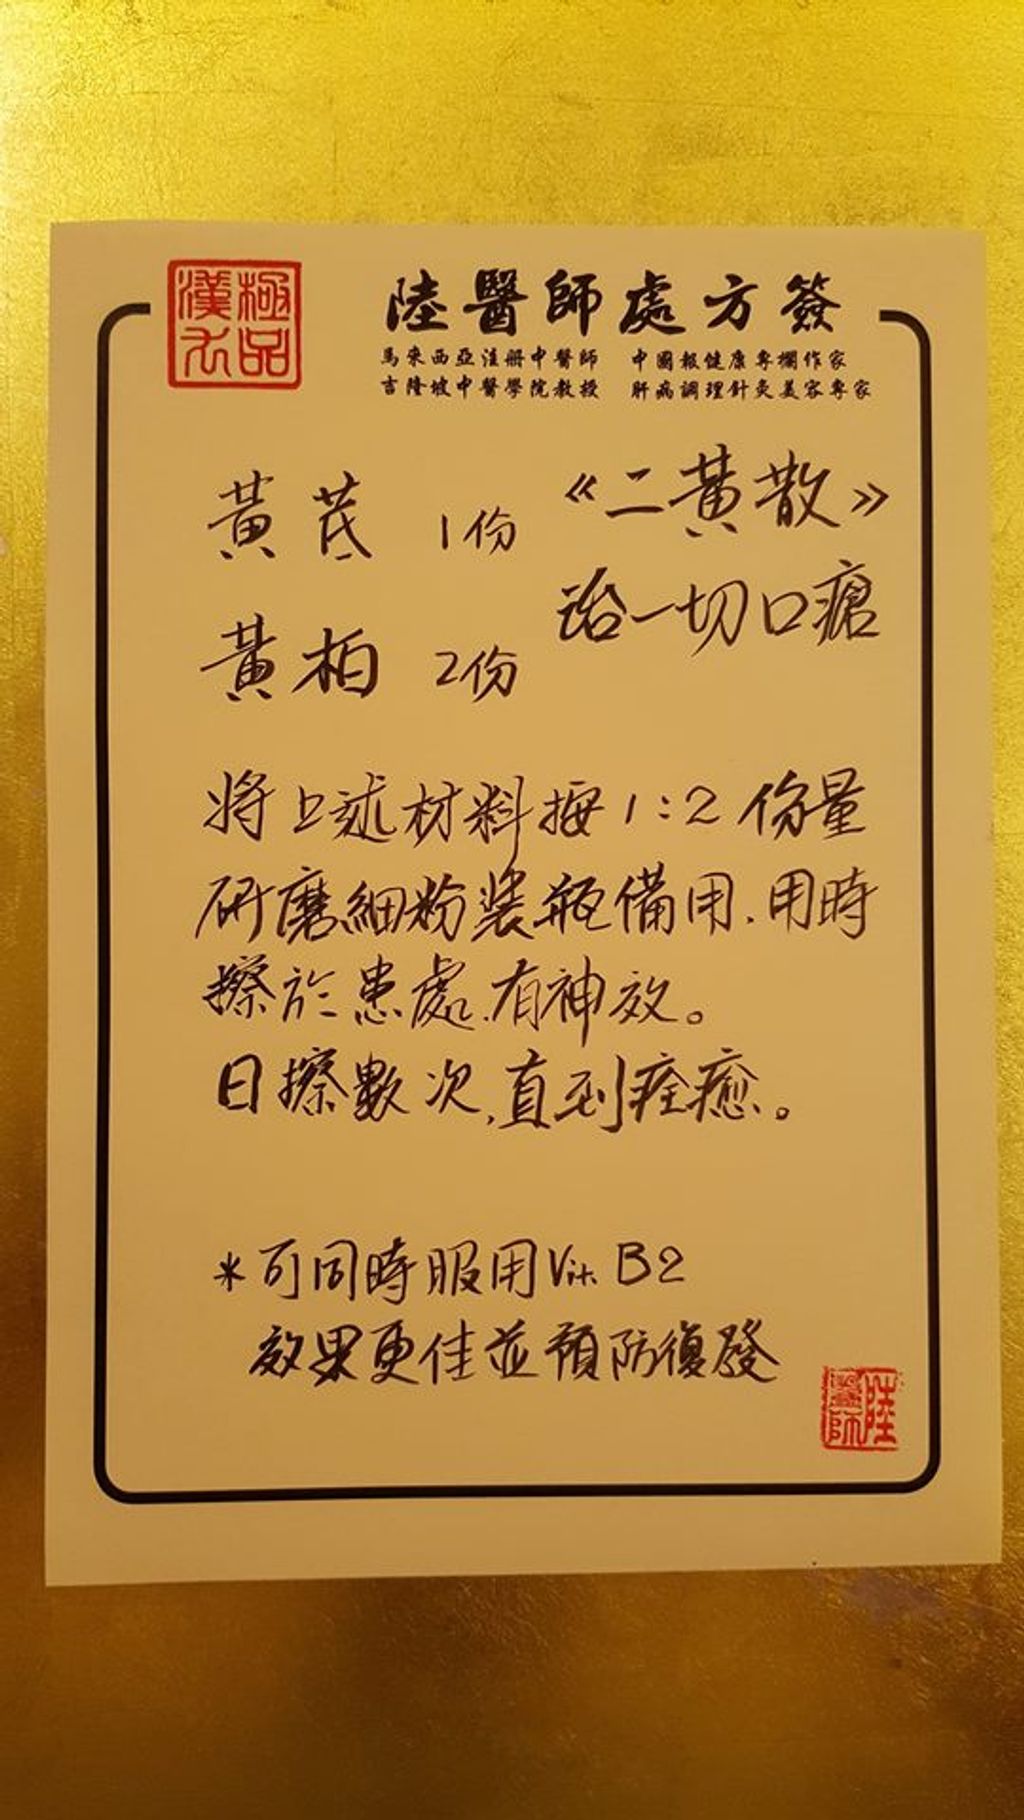 極品
漢方
陸醫師處方簽
馬來西亞注册中醫師 中國報健康專欄作家
吉隆坡中醫學院教授 肝病調理針灸美容專家
《二黃散》
治一切口瘡
黃芪 1份
黃柏 2份
將上述材料按1:2份量
研磨細粉裝瓶備用.用時
擦於患處.有神效。
日擦數次,直到痊癒。
*可同時服用Vit. B2
效果更佳並預防復發
陸
醫師